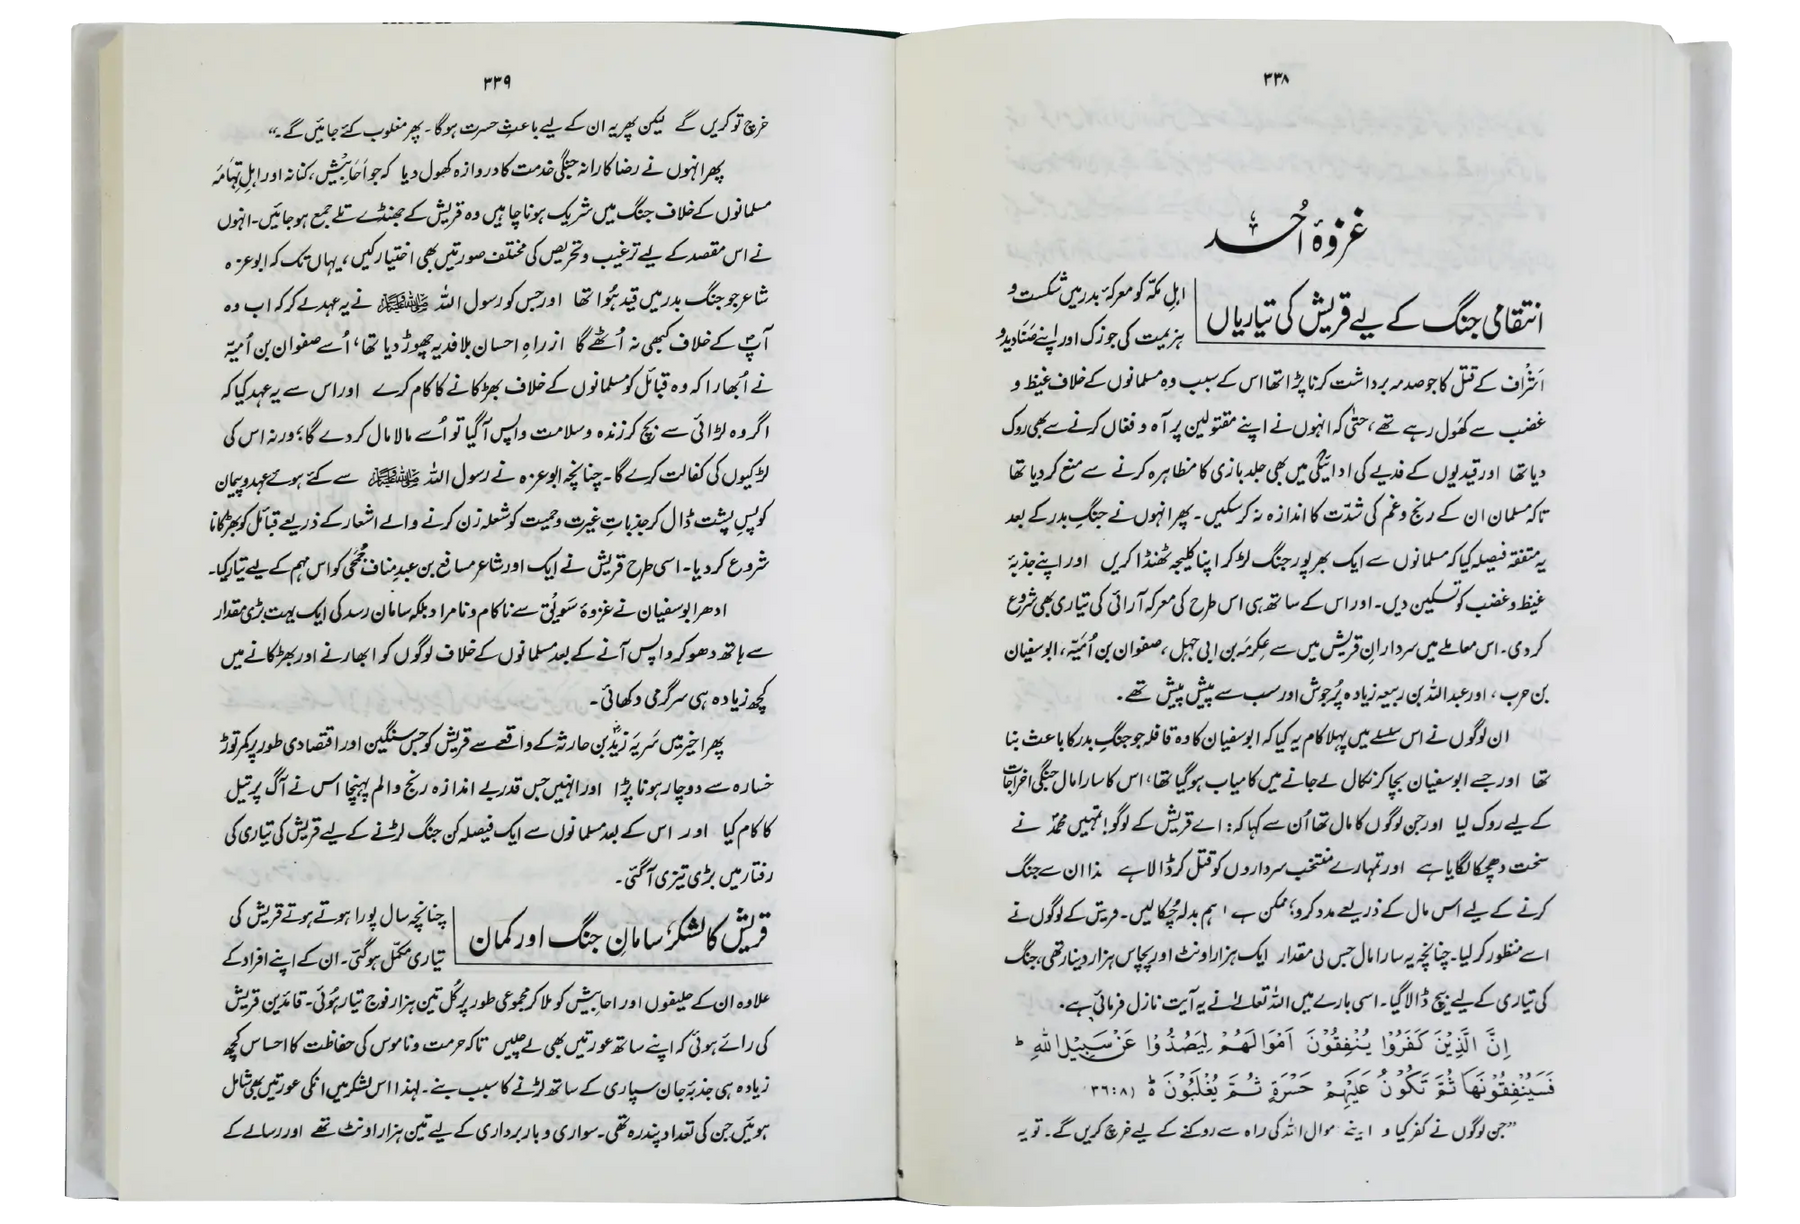 ۳۳۸
غزوۂ اُحد
انتقامی جنگ کے لیے قریش کی تیاریاں
اہلِ مکہ کو معرکۂ بدر میں شکست و
ہزیمت کی جو زک اور اپنے صَنادید و
اَشراف کے قتل کا جو صدمہ برداشت کرنا پڑا تھا اس کے سبب وہ مسلمانوں کے خلاف غیظ و
غضب سے کھول رہے تھے، حتیٰ کہ انہوں نے اپنے مقتولین پر آہ و فغاں کرنے سے بھی روک
دیا تھا اور قیدیوں کے فدیے کی ادائیگی میں بھی جلد بازی کا مظاہرہ کرنے سے منع کر دیا تھا
تاکہ مسلمان ان کے رنج و غم کی شدّت کا اندازہ نہ کر سکیں۔ پھر انہوں نے جنگِ بدر کے بعد
یہ متفقہ فیصلہ کیا کہ مسلمانوں سے ایک بھرپور جنگ لڑ کر اپنا کلیجہ ٹھنڈا کریں اور اپنے جذبۂ
غیظ و غضب کو تسکین دیں۔ اور اس کے ساتھ ہی اس طرح کی معرکہ آرائی کی تیاری بھی شروع
کر دی۔ اس معاملے میں سردارانِ قریش میں سے عِکرمَہ بن ابی جہل، صفوان بن اُمَیَّہ، ابوسفیان
بن حرب، اور عبداللہ بن ربیعہ زیادہ پُرجوش اور سب سے پیش پیش تھے۔
ان لوگوں نے اس سلسلے میں پہلا کام یہ کیا کہ ابوسفیان کا وہ قافلہ جو جنگِ بدر کا باعث بنا
تھا اور جسے ابوسفیان بچا کر نکال لے جانے میں کامیاب ہو گیا تھا، اس کا سارا مال جنگی اخراجات
کے لیے روک لیا اور جن لوگوں کا مال تھا اُن سے کہا کہ: اے قریش کے لوگو! تمہیں محمدؐ نے
سخت دھچکا لگایا ہے اور تمہارے منتخب سرداروں کو قتل کر ڈالا ہے ہذا ان سے جنگ
کرنے کے لیے اس مال کے ذریعے مدد کرو؛ ممکن ہے ہم بدلہ چُکا لیں۔ قریش کے لوگوں نے
اسے منظور کر لیا۔ چنانچہ یہ سارا مال جس کی مقدار ایک ہزار اونٹ اور پچاس ہزار دینار تھی، جنگ
کی تیاری کے لیے بیچ ڈالا گیا۔ اسی بارے میں اللہ تعالےٰ نے یہ آیت نازل فرمائی ہے۔
اِنَّ الَّذِيْنَ كَفَرُوْا يُنْفِقُوْنَ اَمْوَالَهُمْ لِيَصُدُّوْا عَنْ سَبِيْلِ اللّٰهِ ؕ
فَسَيُنْفِقُوْنَهَا ثُمَّ تَكُوْنُ عَلَيْهِمْ حَسْرَةً ثُمَّ يُغْلَبُوْنَ ؕ (۳۶:۸
”جن لوگوں نے کفر کیا و اپنے موال اللہ کی راہ سے روکنے کے لیے خرچ کریں گے۔ تو یہ
۳۳۹
خرچ تو کریں گے لیکن پھر یہ ان کے لیے باعثِ حسرت ہوگا۔ پھر مغلوب کئے جائیں گے۔“
پھر انہوں نے رضاکارانہ جنگی خدمت کا دروازہ کھول دیا کہ جو اَحَابِیش، کنانہ اور اہلِ تِہامَہ
مسلمانوں کے خلاف جنگ میں شریک ہونا چاہیں وہ قریش کے جھنڈے تلے جمع ہو جائیں۔ انہوں
نے اس مقصد کے لیے ترغیب و تحریص کی مختلف صورتیں بھی اختیار کیں، یہاں تک کہ ابوعزہ
شاعر جو جنگِ بدر میں قید ہُوا تھا اور جس کو رسول اللہ ﷺ نے یہ عہد لے کر کہ اب وہ
آپؐ کے خلاف کبھی نہ اُٹھے گا ازراہِ احسان بلا فدیہ چھوڑ دیا تھا، اُسے صفوان بن اُمَیّہ
نے اُبھارا کہ وہ قبائل کو مسلمانوں کے خلاف بھڑکانے کا کام کرے اور اس سے یہ عہد کیا کہ
اگر وہ لڑائی سے بچ کر زندہ و سلامت واپس آگیا تو اُسے مالا مال کر دے گا؛ ورنہ اس کی
لڑکیوں کی کفالت کرے گا۔ چنانچہ ابوعزہ نے رسول اللہ ﷺ سے کئے ہوئے عہد و پیمان
کو پسِ پشت ڈال کر جذباتِ غیرت و حمیت کو شعلہ زن کرنے والے اشعار کے ذریعے قبائل کو بھڑکانا
شروع کر دیا۔ اسی طرح قریش نے ایک اور شاعر مسافع بن عبد مناف جُمَحی کو اس مہم کے لیے تیار کیا۔
ادھر ابوسفیان نے غزوۂ سَوِیْق سے ناکام و نامراد بلکہ سامانِ رسد کی ایک بہت بڑی مقدار
سے ہاتھ دھو کر واپس آنے کے بعد مسلمانوں کے خلاف لوگوں کو ابھارنے اور بھڑکانے میں
کچھ زیادہ ہی سرگرمی دکھائی۔
پھر اخیر میں سَریّہ زیدؓ بن حارثہ کے واقعے سے قریش کو جس سنگین اور اقتصادی طور پر کمر توڑ
خسارہ سے دو چار ہونا پڑا اور انہیں جس قدر بے اندازہ رنج و الم پہنچا اس نے آگ پر تیل
کا کام کیا اور اس کے بعد مسلمانوں سے ایک فیصلہ کن جنگ لڑنے کے لیے قریش کی تیاری کی
رفتار میں بڑی تیزی آگئی۔
قریش کا لشکر، سامانِ جنگ اور کمان
چنانچہ سال پورا ہوتے ہوتے قریش کی
تیاری مکمّل ہوگئی۔ ان کے اپنے افراد کے
علاوہ ان کے حلیفوں اور احابیش کو ملا کر مجموعی طور پر کُل تین ہزار فوج تیار ہُوئی۔ قائدین قریش
کی رائے ہوئی کہ اپنے ساتھ عورتیں بھی لے چلیں تاکہ حرمت و ناموس کی حفاظت کا احساس کچھ
زیادہ ہی جذبۂ جان سپاری کے ساتھ لڑنے کا سبب بنے۔ لہٰذا اس لشکر میں انکی عورتیں بھی شامل
ہوئیں جن کی تعداد پندرہ تھی۔ سواری و باربرداری کے لیے تین ہزار اونٹ تھے اور رسالے کے